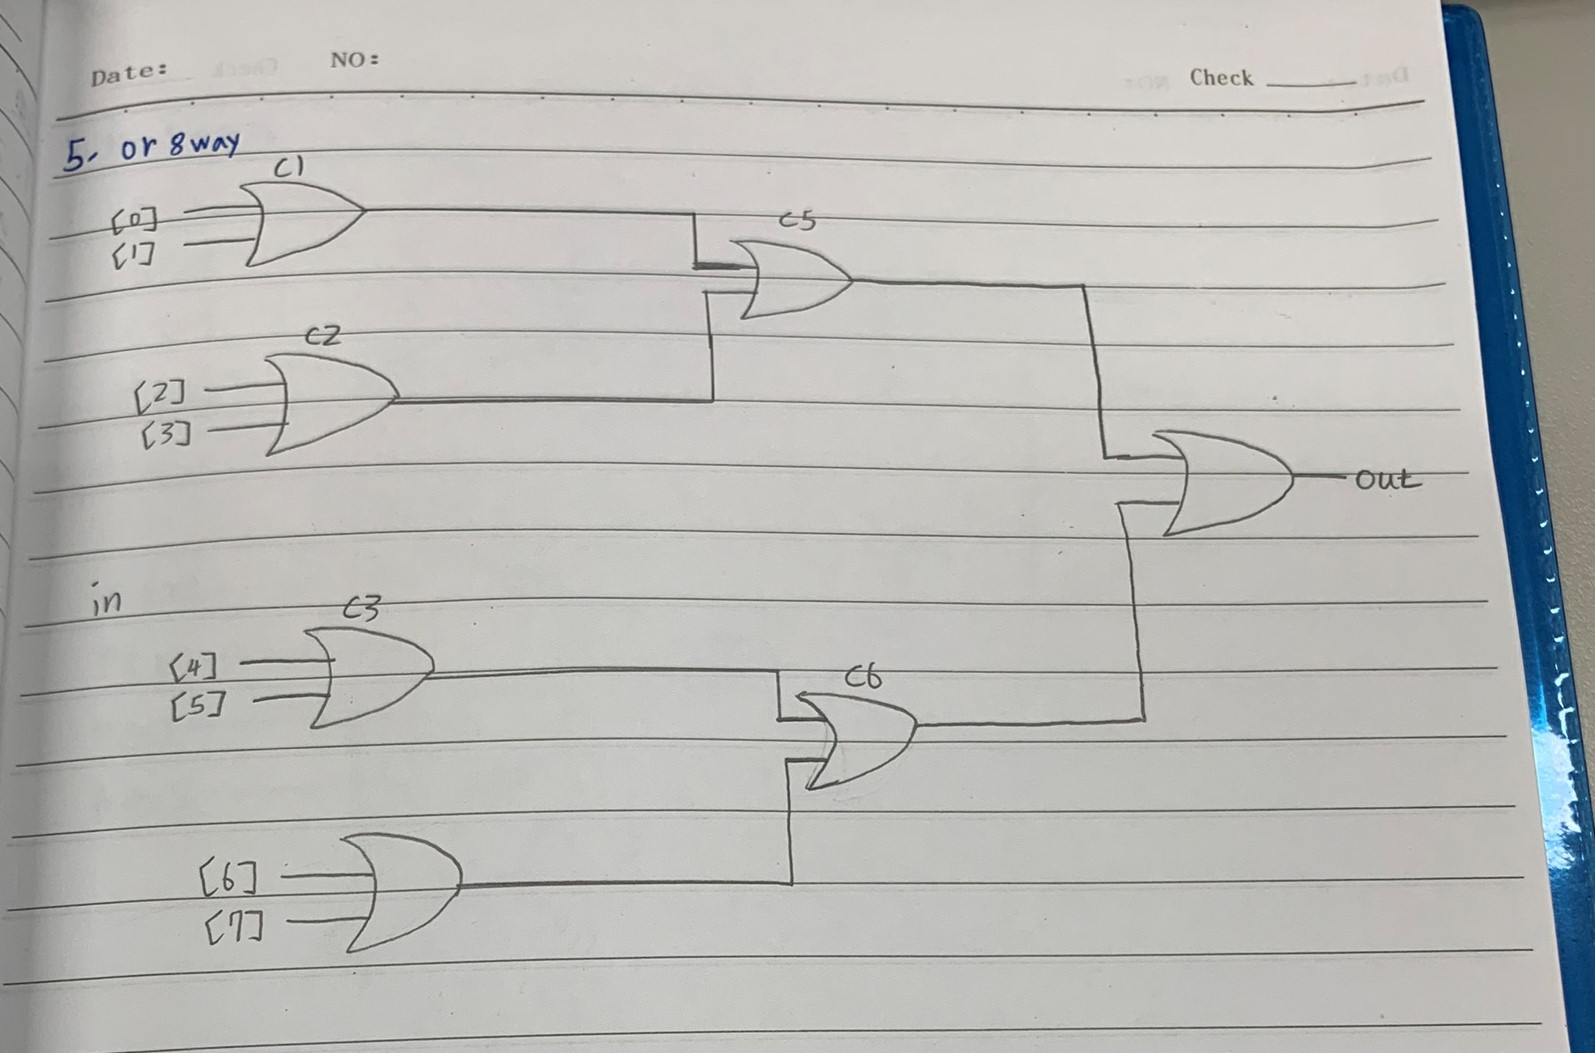 Date: NO: Check
5. or 8way
C1
[0]
[1]
C5
C2
[2]
[3]
out
in
C3
[4]
[5]
C6
[6]
[7]